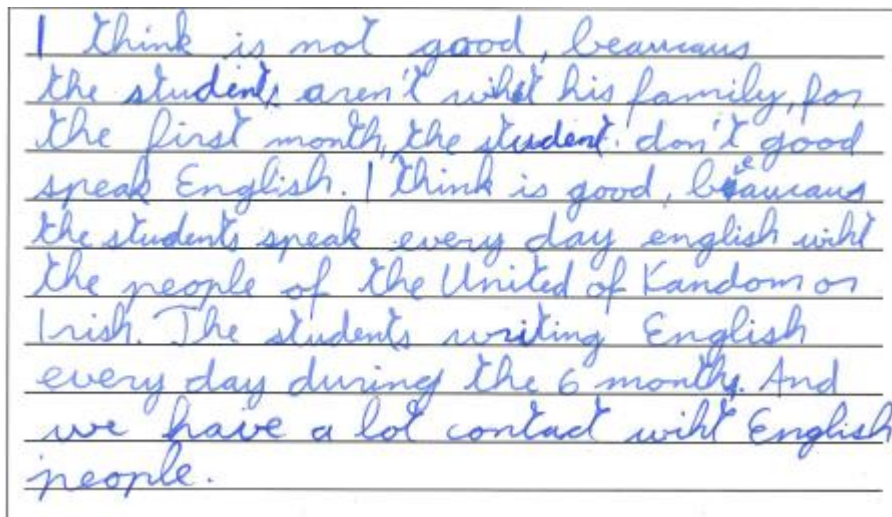 I think is not good, beaucaus
the students aren't whit his family, for
the first month, the student don't good
speak English. I think is good, beaucaus
the students speak every day english wiht
the people of the United of Kandom or
Irish. The students writing English
every day during the 6 months. And
we have a lot contact wiht English
people.